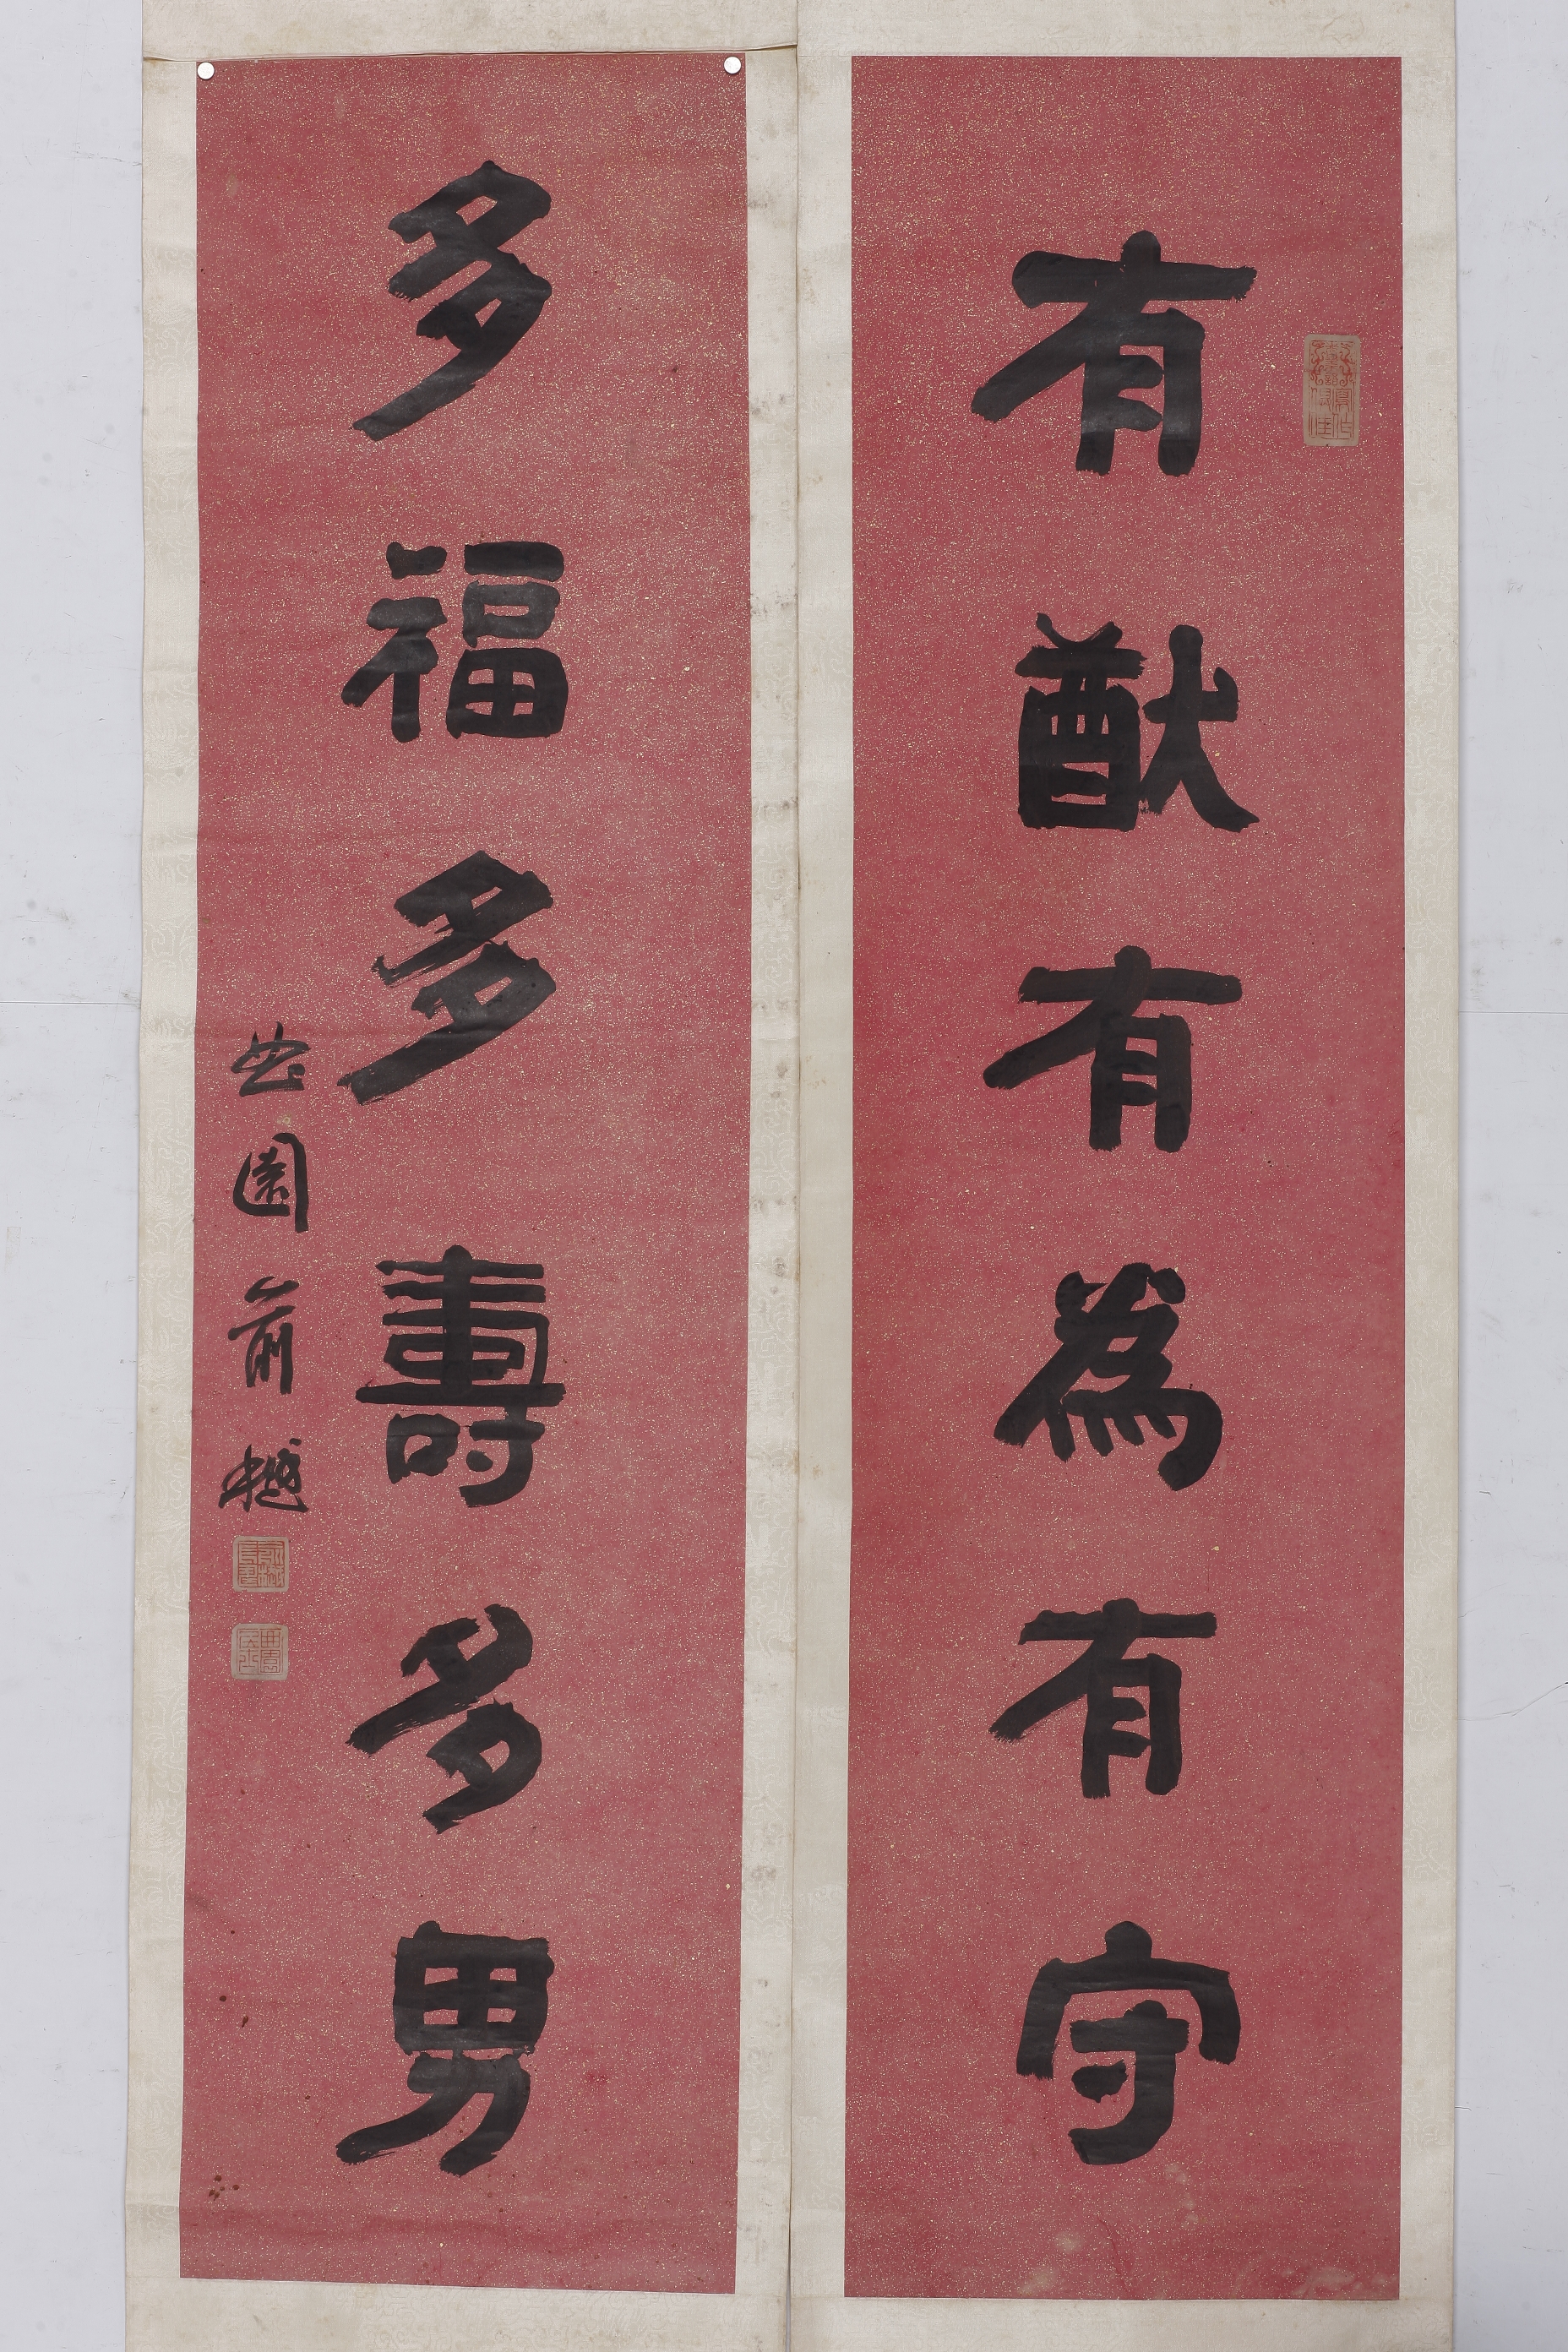 有猷有為有守
多福多壽多男
曲園俞樾